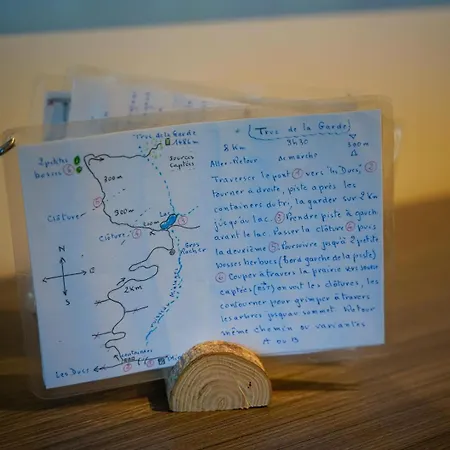 Trus de la Garde
1486m
2 petites
bosses
sources
captées
300m
Clôture
900m
Clôture
Lac
Gros
Rocher
N
S
2Km
Les Ducs
containers
Trus de la Garde
8 Km 3H30 500m
Aller-Retour de marche
Traverser le pont ① vers "les Ducs", ②
tourner à droite, piste après les
containers du tri, la garder sur 2 Km
jusqu'au lac. ③ Prendre piste à gauche
avant le lac. Passer la clôture ④ puis
la deuxième ⑤. Poursuivre jusqu'à 2 petites
bosses herbues (bord gauche de la piste)
⑥ Couper à travers la prairie vers
captées on voit les clôtures, les
contourner pour grimper à travers
les arbres jusqu'au sommet. Retour
même chemin ou variantes
A ou B